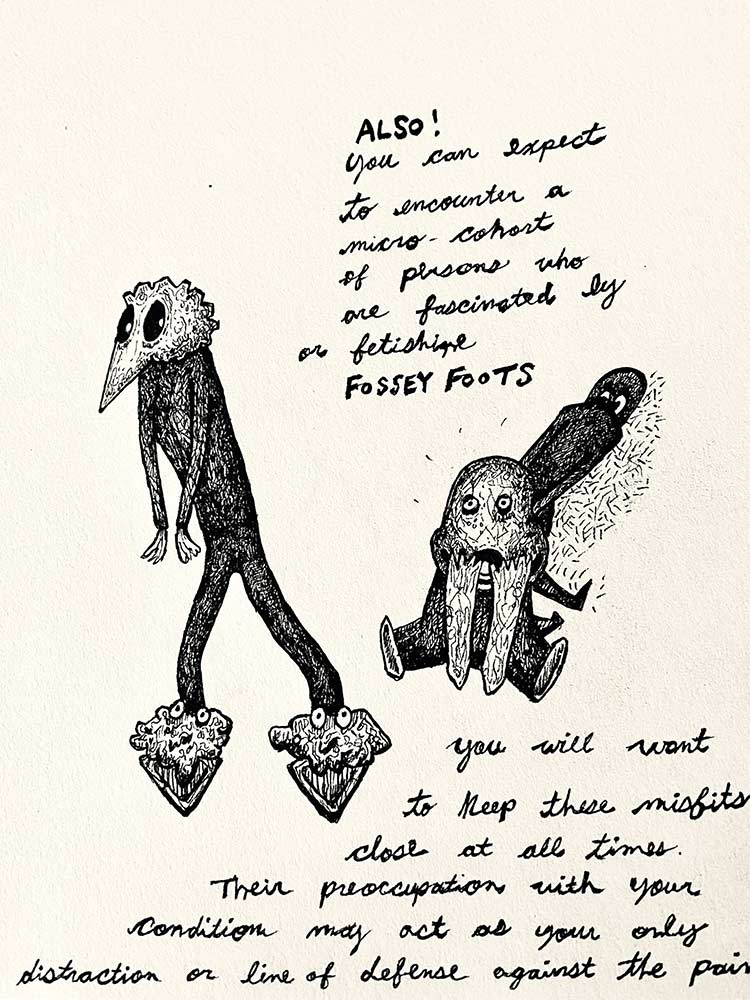 ALSO!
you can expect
to encounter a
micro-cohort
of persons who
are fascinated by
or fetishize
FOSSEY FOOTS
you will want
to keep these misfits
close at all times.
Their preoccupation with your
condition may act as your only
distraction or line of defense against the pain